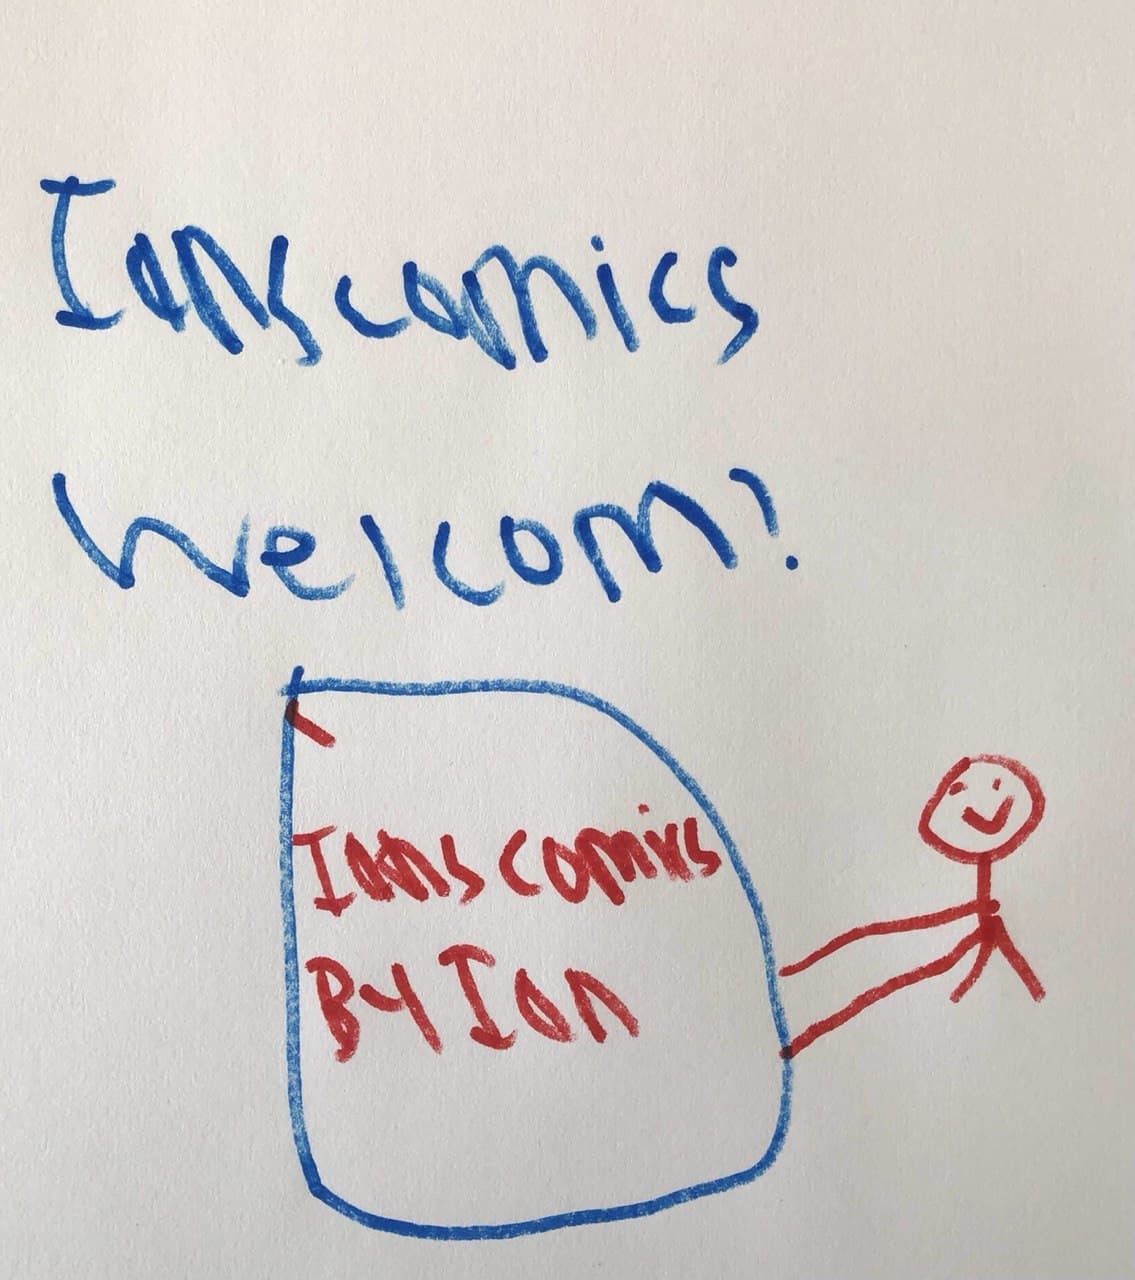 Ians comics
Welcom!
Ians comics
By Ian